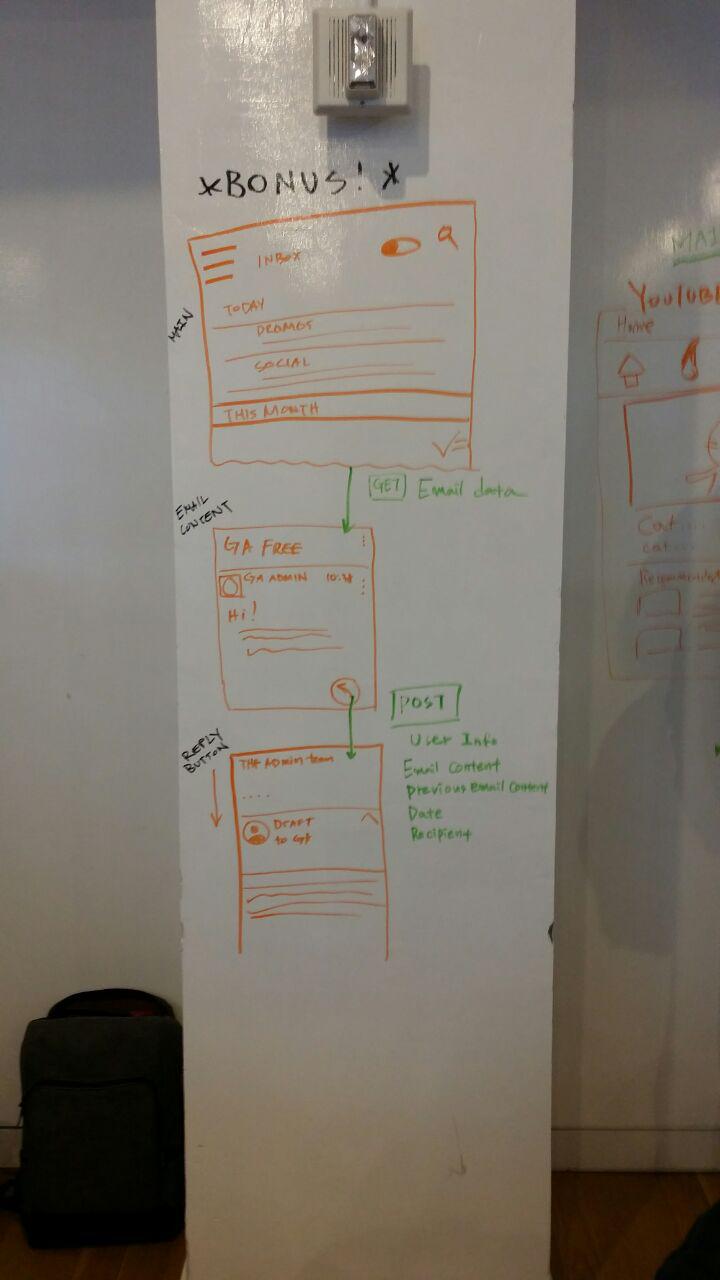 *BONUS!*
MAIN
INBOX
TODAY
PROMOS
SOCIAL
THIS MONTH
GET Email data
EMAIL
CONTENT
GA FREE
GA ADMIN
Hi!
POST
User Info
Email Content
previous Email Content
Date
Recipient
REPLY
BUTTON
THE Admin team
DRAFT
to GA
MAI
YOUTUB
Home
cat...